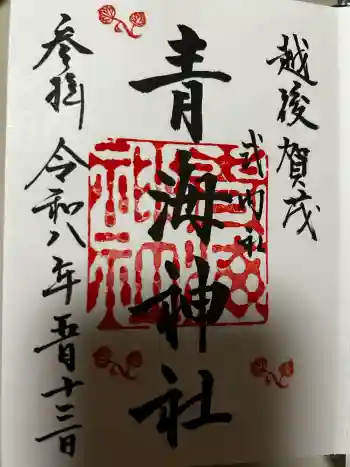 越後賀茂
式内社
青海神社
参拝
令和八年五月十三日